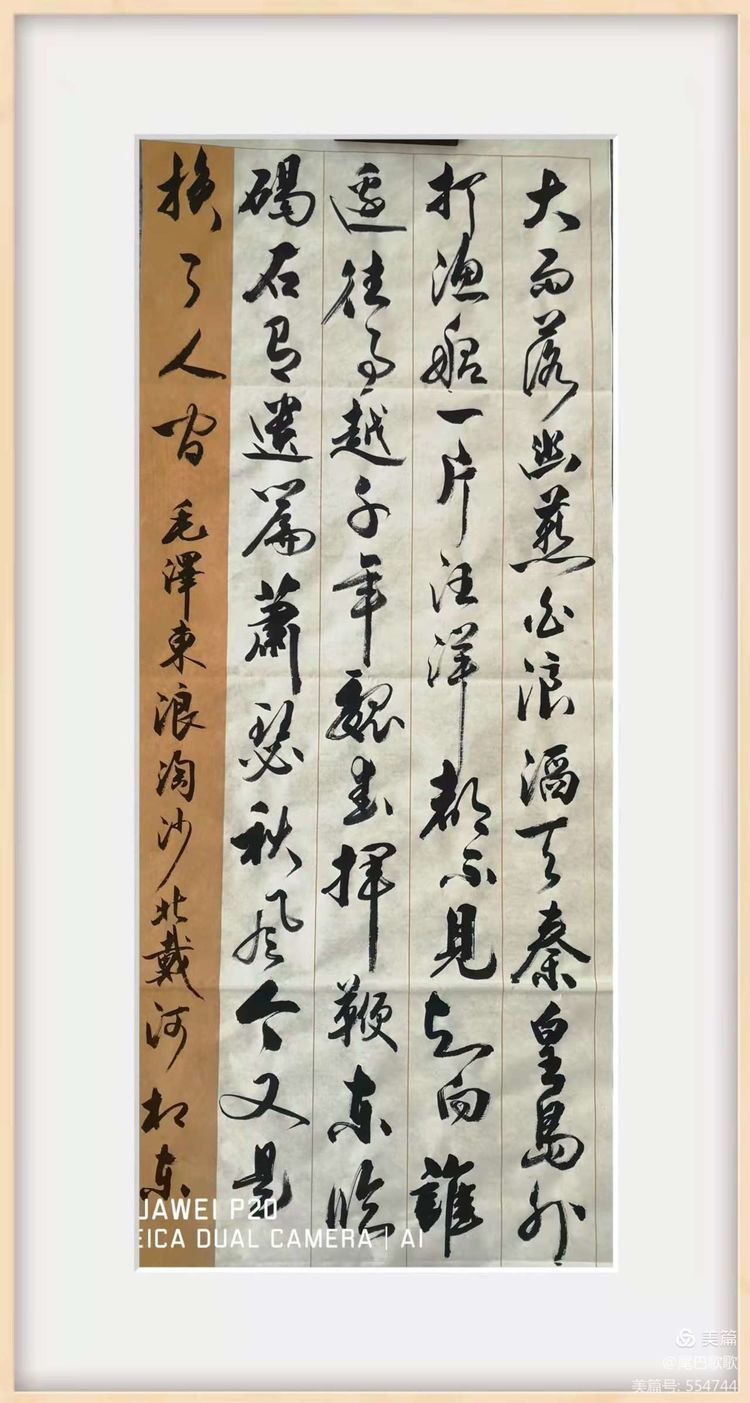 大雨落幽燕白浪滔天秦皇島外
打漁船一片汪洋都不見知向誰
邊往事越千年魏武揮鞭東臨
碣石有遺篇蕭瑟秋風今又是
換了人間 毛澤東浪淘沙北戴河 东
UAWEI P20
EICA DUAL CAMERA | AI
美篇
@尾巴歌歌
美篇号: 554744